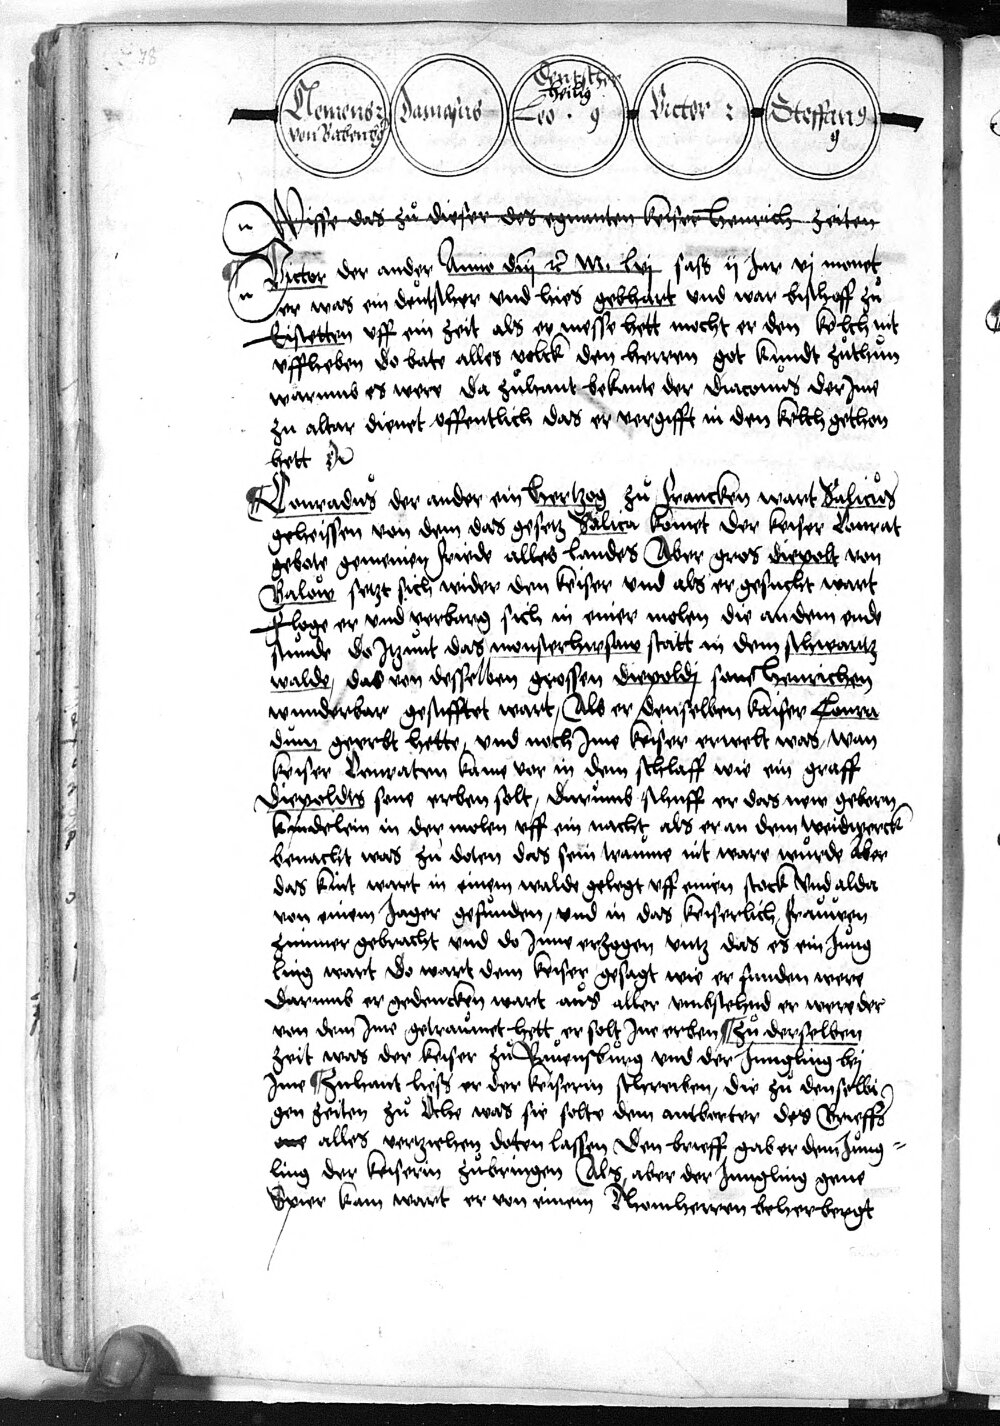 78
Clemens :
von Babenbg
Damasus
deutscher
heilig
Leo . 9
Victor :
Steffang
9
n Wisse das zu dieser des egnanten keiser henrich zeiten
n Victor der ander Anno dni M. lvj sass ij Jar vj monet
er was ein deutscher und hies gebhart und war bischoff zu
Eistetten uff ein zeit als er messe hett mocht er den kelch nit
uffheben do bate alles volck den herren got kundt zuthun
warumb es were da zuhant bekante der diaconus der Jme
zu altar dienet offentlich das er vergifft in den kelch gethon
hett
Conradus der ander ein hertzog zu francken wart Salicus
geheissen von dem das gesetz Salica komet der keiser Conrat
gebote gemeinen friede alles landes Aber gros diepolt von
Calow setzt sich wider den keiser und als er gesucht wart
floge er und verbarg sich in einer molen die an dem ende
stunde do Itzunt das monster hirsaw statt in dem schwartz
walde, das von desselben grossen diepoldj sone henrichen
wunderbar gestifftet wart, Als er denselben kaiser Conra
dum geerbt hette, und noch Jme keiser erwelt was, wan
keiser Conraten kame vor in dem schlaff wie ein graff
diepoldts sone erben solt, darumb schuff er das new geborn
kindelein in der molen uff ein nacht als er an dem weidwerck
benacht was zu doten das sein traume nit ware wurde aber
das kint wart in einem walde gelegt uff einen stock und alda
von einem Jager gefunden, und in das keiserlich frauwen
zimmer gebracht und do Jnne erzogen untz das es ein Jung
ling wart do wart dem keiser gesagt wie er funden were
darumb er gedencken wart aus aller umbstehnd er were der
von dem Jme getraumet hett er solt Jne erben Zu derselben
zeit was der keiser zu Rauensburg und der Jungling bej
Jme Zuhant liess er der keiserin schreiben, die zu denselbi
gen zeiten zu Ache was sie solte dem antworter des brieffs
one alles verziehen doten lassen den brieff gab er dem Jung =
ling der keiserin zubringen Als aber der Jungling gene
Speier kam wart er von einem Thomherren beherbergt